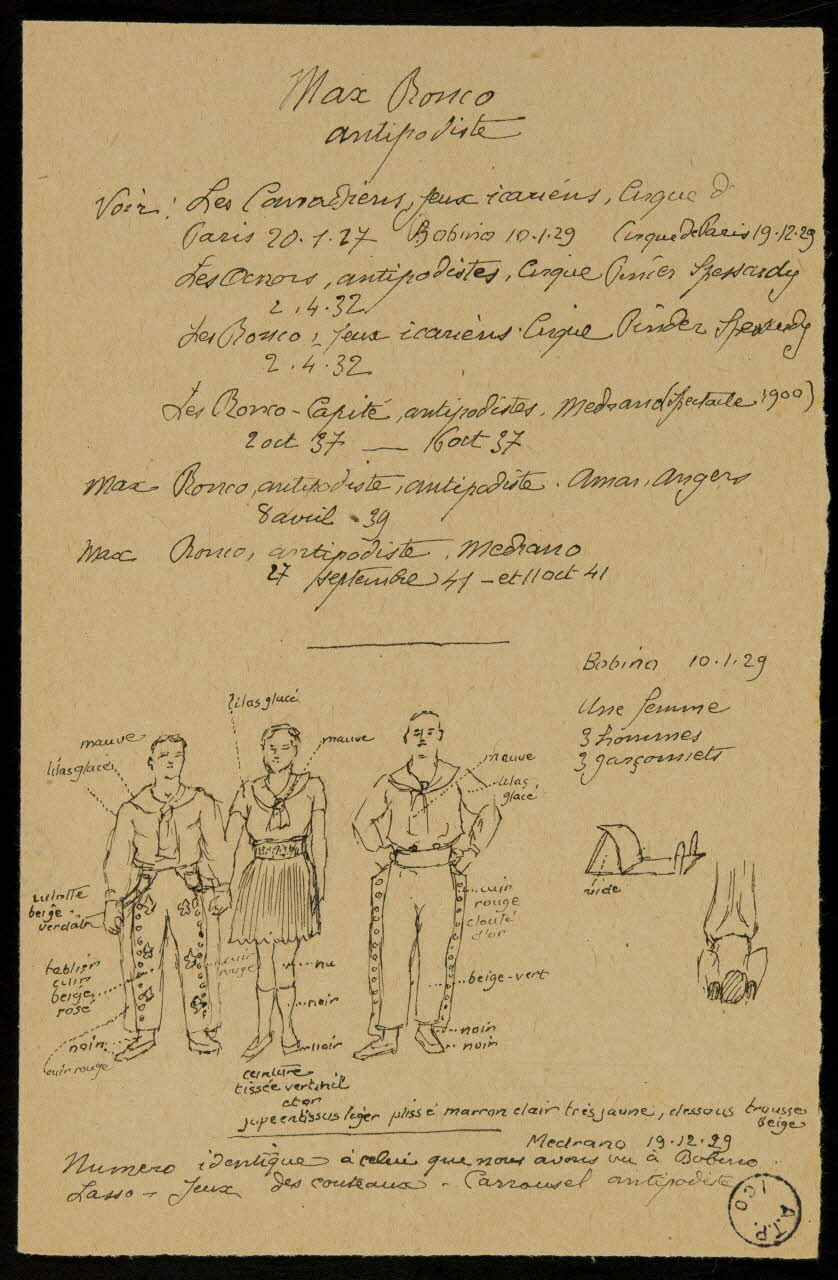 Max Ronco
antipodiste
Voir : Les Canadiens, jeux icariens, Cirque d
Paris 20.1.27 Bobino 10.1.29 Cirque de Paris 19.12.29
Les Ocnors, antipodistes, Cirque Pinder Spessardy
2.4.32
Les Ronco, jeux icariens Cirque Pinder Spessardy
2.4.32
Les Ronco-Capité, antipodistes, Medrano (Spectacle 1900)
2 oct 37 — 16 oct 37
Max Ronco, antipodiste, antipodiste. Amar, Angers
8 avril 39
Max Ronco, antipodiste, Medrano
27 septembre 41 - et 11 oct 41
Bobino 10.1.29
Une femme
3 hommes
3 garçonnets
lilas glacé
mauve
lilas glacé
mauve
mauve
lilas
glacé
vide
culotte
beige
verdâtr
tablier
cuir
beige
rosé
noir
cuir rouge
cuir
rouge
nu
noir
noir
cuir
rouge
clouté
d'or
beige-vert
noir
noir
ceinture
tissée vert nil
et or
jupe en tissus léger plissé marron clair très jaune, dessous trousse
beige
Medrano 19.12.29
Numero identique à celui que nous avons vu à Bobino
Lasso - Jeux des couteaux - Carrousel antipodiste
A.T.P.